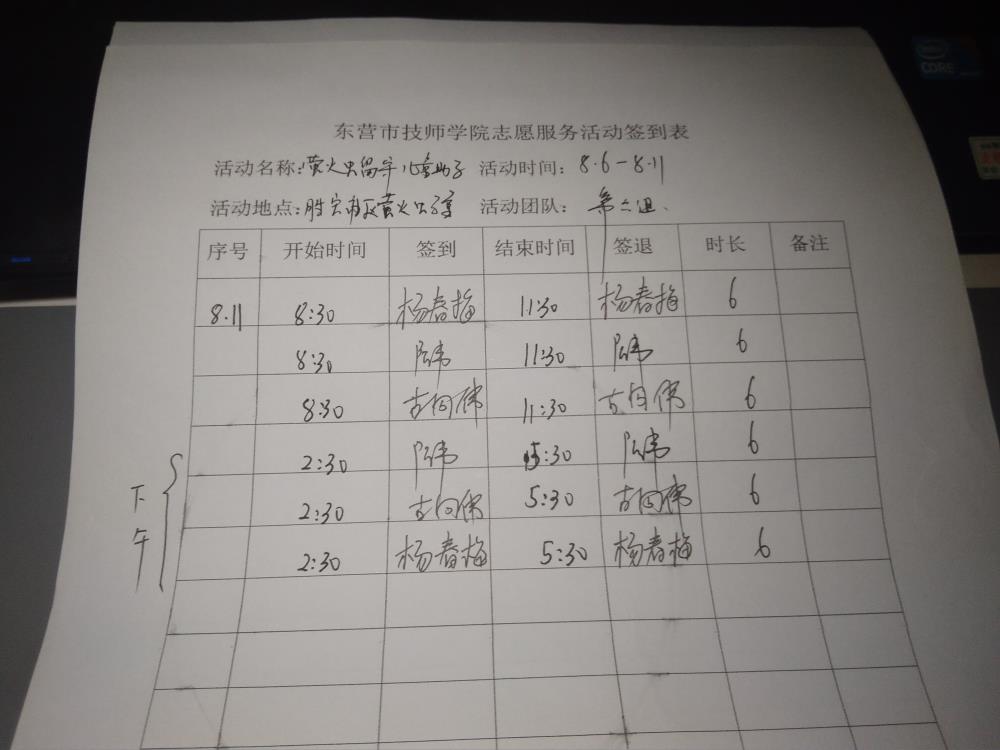 CORE
东营市技师学院志愿服务活动签到表
活动名称:萤火虫留守儿童助学 活动时间: 8.6-8.11
活动地点: 萤火虫 活动团队: 第二组.
序号 开始时间 签到 结束时间 签退 时长 备注
8.11 8:30 杨春梅 11:30 杨春梅 6
8:30 陈伟 11:30 陈伟 6
8:30 古向伟 11:30 古向伟 6
2:30 陈伟 5:30 陈伟 6
2:30 古向伟 5:30 古向伟 6
2:30 杨春梅 5:30 杨春梅 6
下午